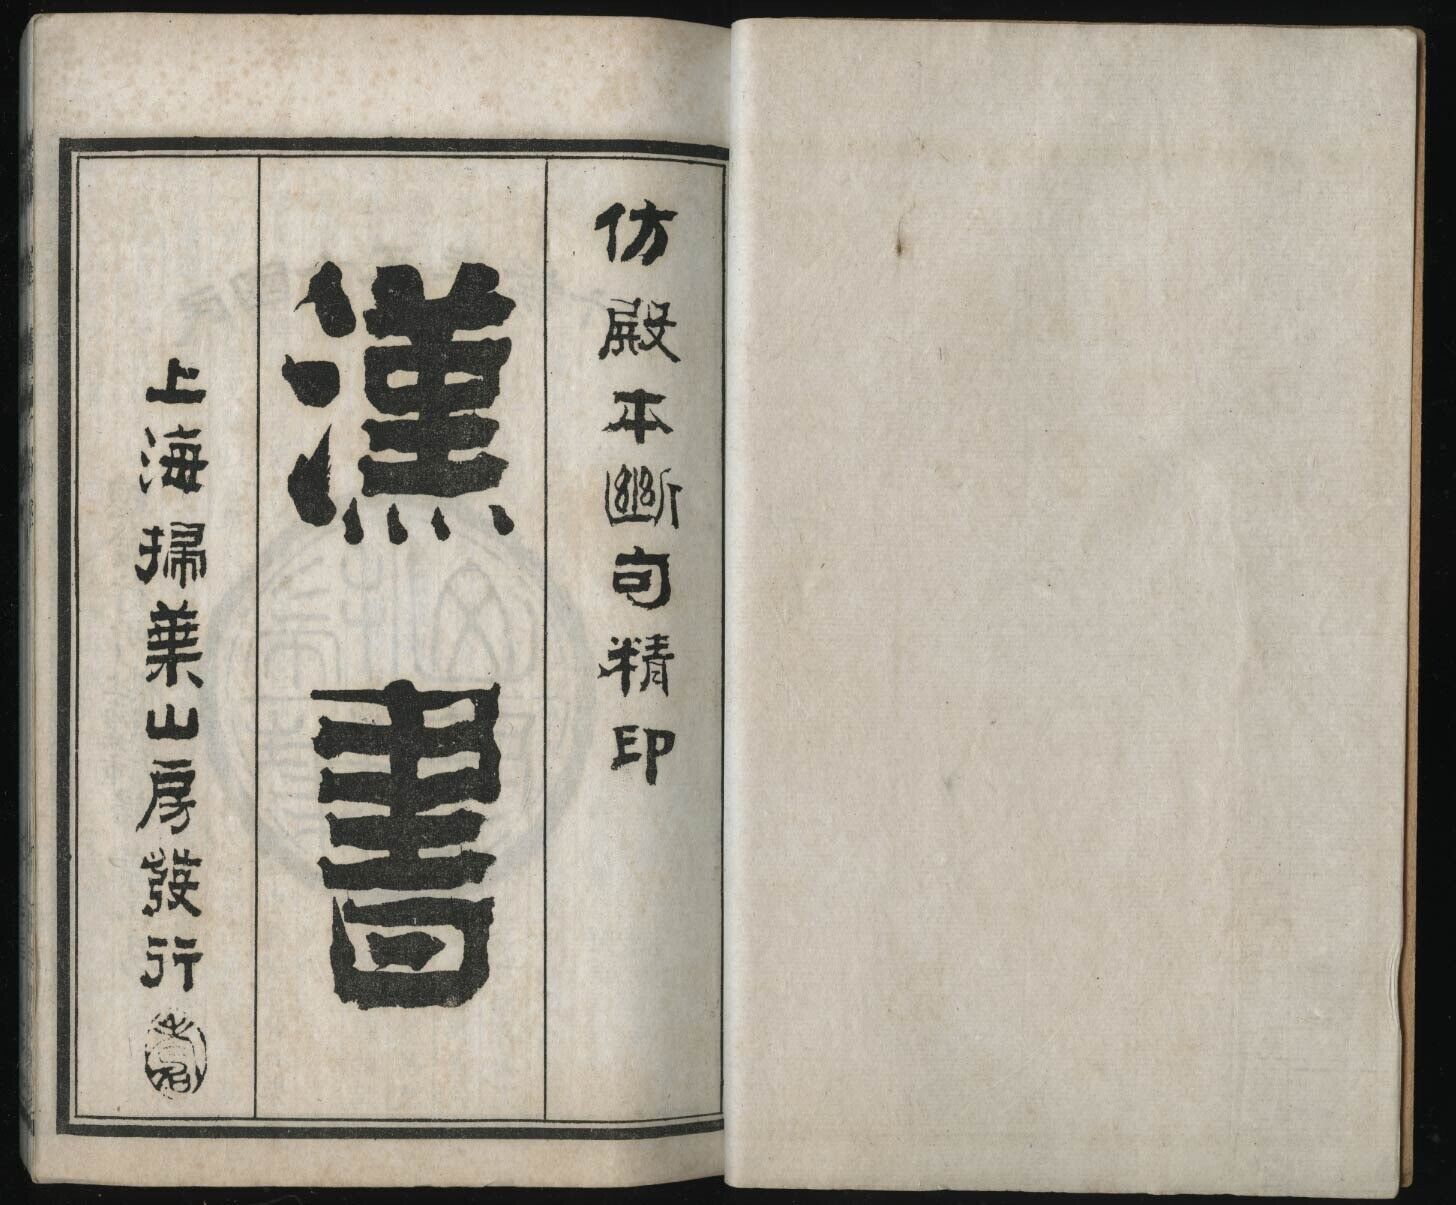 仿殿本斷句精印
漢書
上海掃葉山房發行